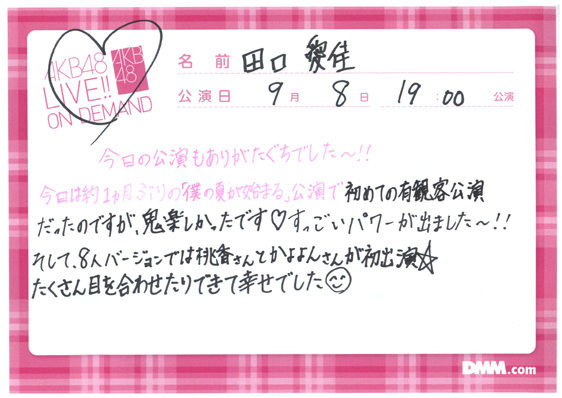 AKB48
LIVE!!
ON DEMAND
AKB
48
名前 田口 愛佳
公演日 9月 8日 19:00 公演
今日の公演もありがたぐちでした〜!!
今日は約1ヵ月ぶりの「僕の夏が始まる」公演で初めての有観客公演
だったのですが、鬼楽しかったです♡すっごいパワーが出ました〜!!
そして、8人バージョンでは桃香さんとかよよんさんが初出演☆
たくさん目を合わせたりできて幸せでした☺
DMM.com